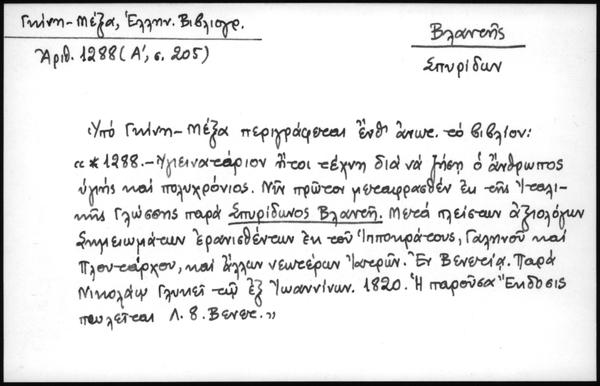 Γκίνη-Μέξα, Ἑλλην. Βιβλιογρ.
Ἀριθ. 1288 (Α', σ. 205)
Βλαντῆς
Σπυρίδων
Ὑπό Γκίνη-Μέξα περιγράφεται ἔνθ' ἀνωτ. τό βιβλίον:
«*1288.-Ὑγιεινατάριον ἤτοι τέχνη διά νά ζήσῃ ὁ ἄνθρωπος
ὑγιής καί πολυχρόνιος. Νῦν πρῶτον μεταφρασθέν ἐκ τῆς Ἰταλι-
κῆς Γλώσσης παρά Σπυρίδωνος Βλαντῆ. Μετά πλείστων ἀξιολόγων
Σημειωμάτων ἐρανισθέντων ἐκ τοῦ Ἱπποκράτους, Γαληνοῦ καί
Πλουτάρχου, καί ἄλλων νεωτέρων Ἰατρῶν. Ἐν Βενετίᾳ. Παρά
Νικολάῳ Γλυκεῖ τῷ ἐξ Ἰωαννίνων. 1820. Ἡ παροῦσα Ἔκδοσις
πωλεῖται Λ. 8. Βενετ.»